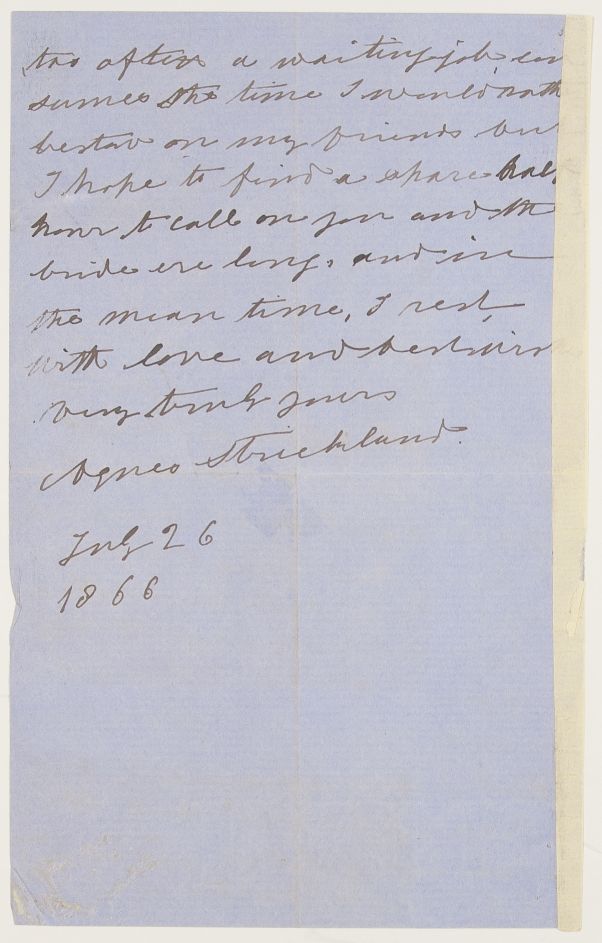 too often a waiting job con
sumes the time I would rath
bestow on my friends but
I hope to find a spare half
hour to call on you and the
bride ere long, and in
the mean time, I rest,
with love and best wish
very truly yours
Agnes Strickland.
July 26
1866